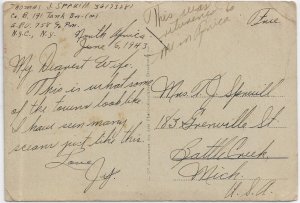 Thomas J Spruill 36173281
Co B, 191 Tank Bn. (M)
A.P.O. 758 % P.M.
N.Y.C., N.Y.
North Africa
June 6, 1943
My Dearest Wife.
This is what some
of the towns look like
I have seen many
sceans just like this.
Love
This was
returned to
me in Africa
Free
Mrs T J Spruill
183 Grenville St
Battle Creek,
Mich.
U.S.A.